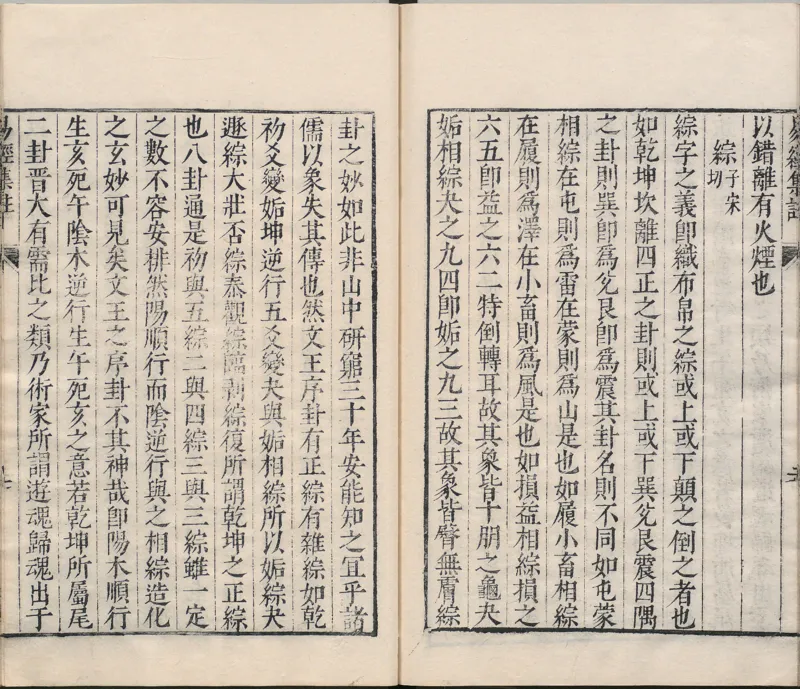 以錯離有火煙也
綜子宋切
綜字之義卽織布帛之綜或上或下顛之倒之者也
如乾坤坎離四正之卦則或上或下巽兌艮震四隅
之卦則巽卽爲兌艮卽爲震其卦名則不同如屯蒙
相綜在屯則爲雷在蒙則爲山是也如履小畜相綜
在履則爲澤在小畜則爲風是也如損益相綜損之
六五卽益之六二特倒轉耳故其象皆十朋之龜夬
姤相綜夬之九四卽姤之九三故其象皆臀無膚綜
卦之妙如此非山中研窮三十年安能知之宜乎諸
儒以象失其傳也然文王序卦有正綜有雜綜如乾
初爻變姤坤逆行五爻變夬與姤相綜所以姤綜夬
遯綜大壯否綜泰觀綜臨剥綜復所謂乾坤之正綜
也八卦通是初與五綜二與四綜三與三綜雖一定
之數不容安排然陽順行而陰逆行與之相綜造化
之玄妙可見矣文王之序卦不其神哉卽陽木順行
生亥死午陰木逆行生午死亥之意若乾坤所屬尾
二封晋大有需比之類乃術家所謂遊魂歸魂出于
易經集註